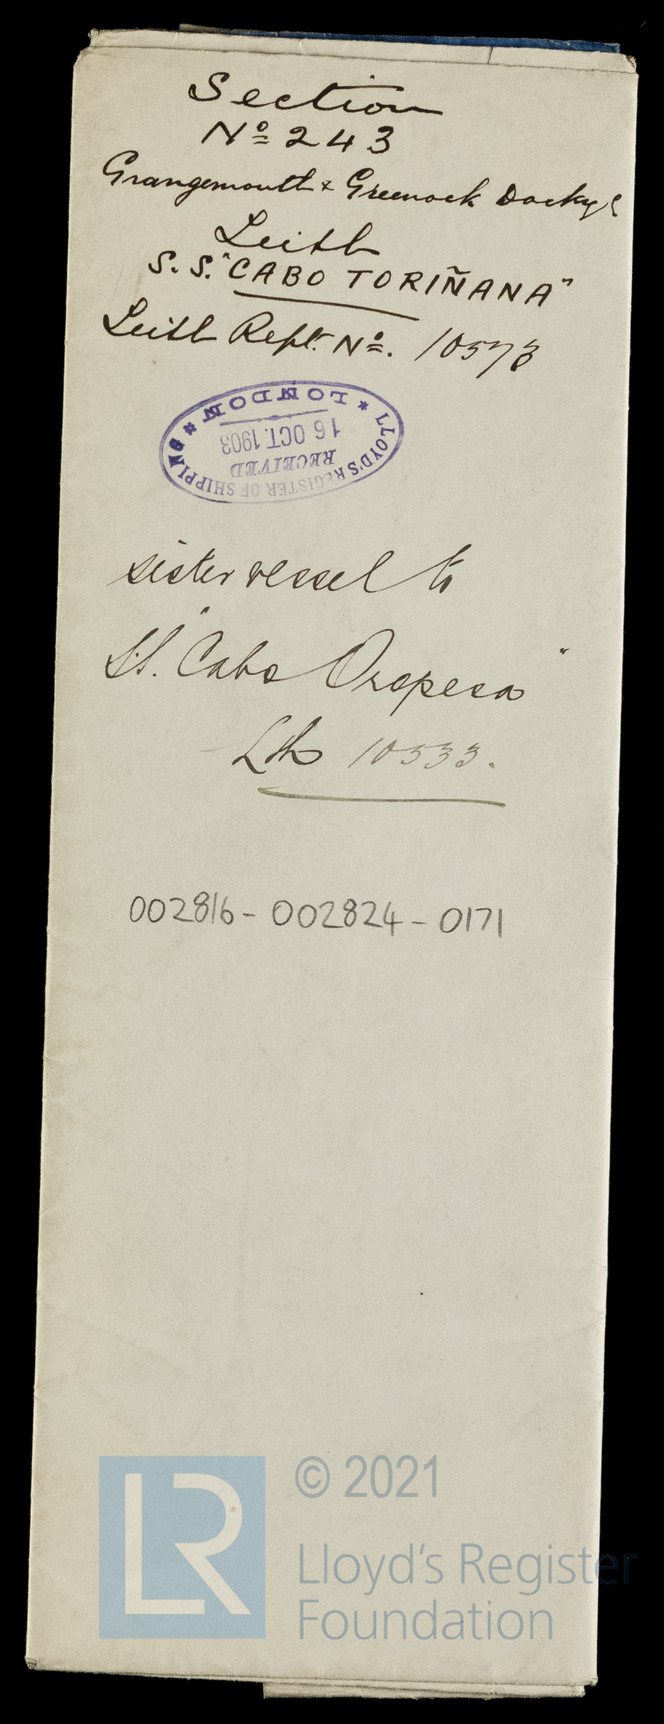 Section
Nº 243
Grangemouth & Greenock Dockyd
Leith
S.S. "CABO TORIÑANA"
Leith Rept. Nº. 10573
LLOYD'S REGISTER OF SHIPPING
RECEIVED
16 OCT. 1903
* LONDON *
sister vessel to
S.S. "Cabo Oropesa"
Lth 10533.
002816 - 002824 - 0171
LR
© 2021
Lloyd's Register
Foundation